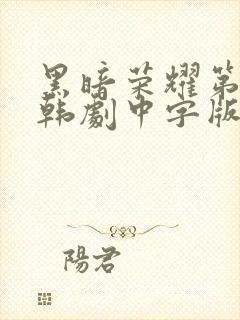 黑暗荣耀第
韩劇中字版
陽君